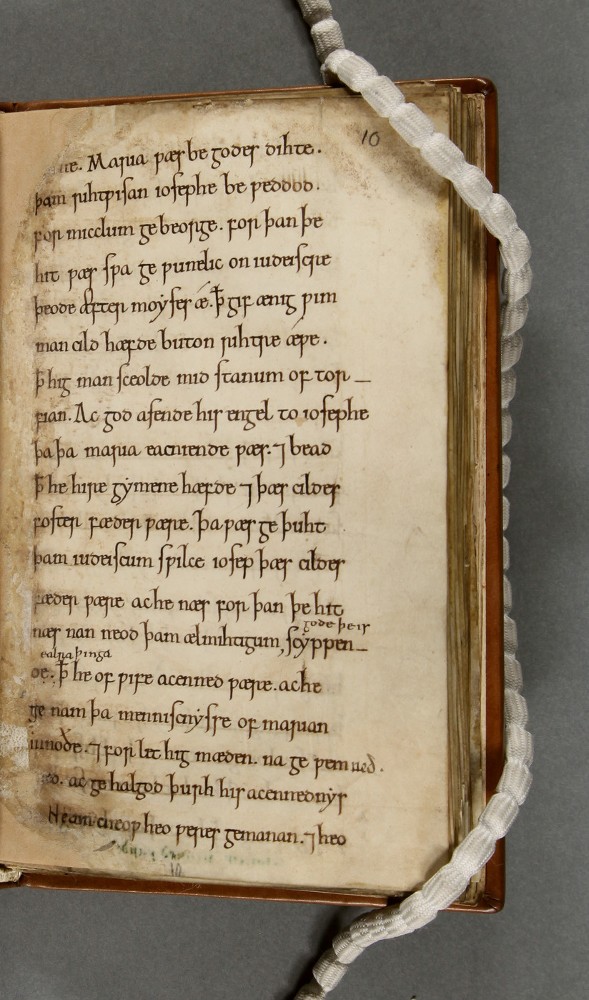 re. Maria ƿæs be godes dihte. 10
þam rihtƿisan iosephe be ƿeddod.
for micclum ge beorge. for þan þe
hit ƿæs sƿa ge ƿunelic on iudeiscre
þeode æfter moẏses ǽ. ꝥ gif ænig ƿim
man cild hæfde buton rihtre ǽƿe.
ꝥ hig man sceolde mid stanum of tor_
fian. Ac god asende his engel to iosephe
þa þa maria eacniende ƿæs. ⁊ bead
ꝥ he hire gẏmene hæfde ⁊ þæs cildes
foster fæder ƿære. þa ƿæs ge þuht
þam iudeiscum sƿilce iosep þæs cildes
fæder ƿære ac he næs for þan þe hit
gode þe is
næs nan neod þam ælmihtigum, scẏppen_
ealra þinga
de. ꝥ he of ƿife acenned ƿære. ac he
ge nam þa menniscnẏsse of marian
innoðe. ⁊ for let hig mæden. na ge ƿemmed.
ac ge halgod þurh his acennednẏs
heo ƿeres gemanan. ⁊ heo
10